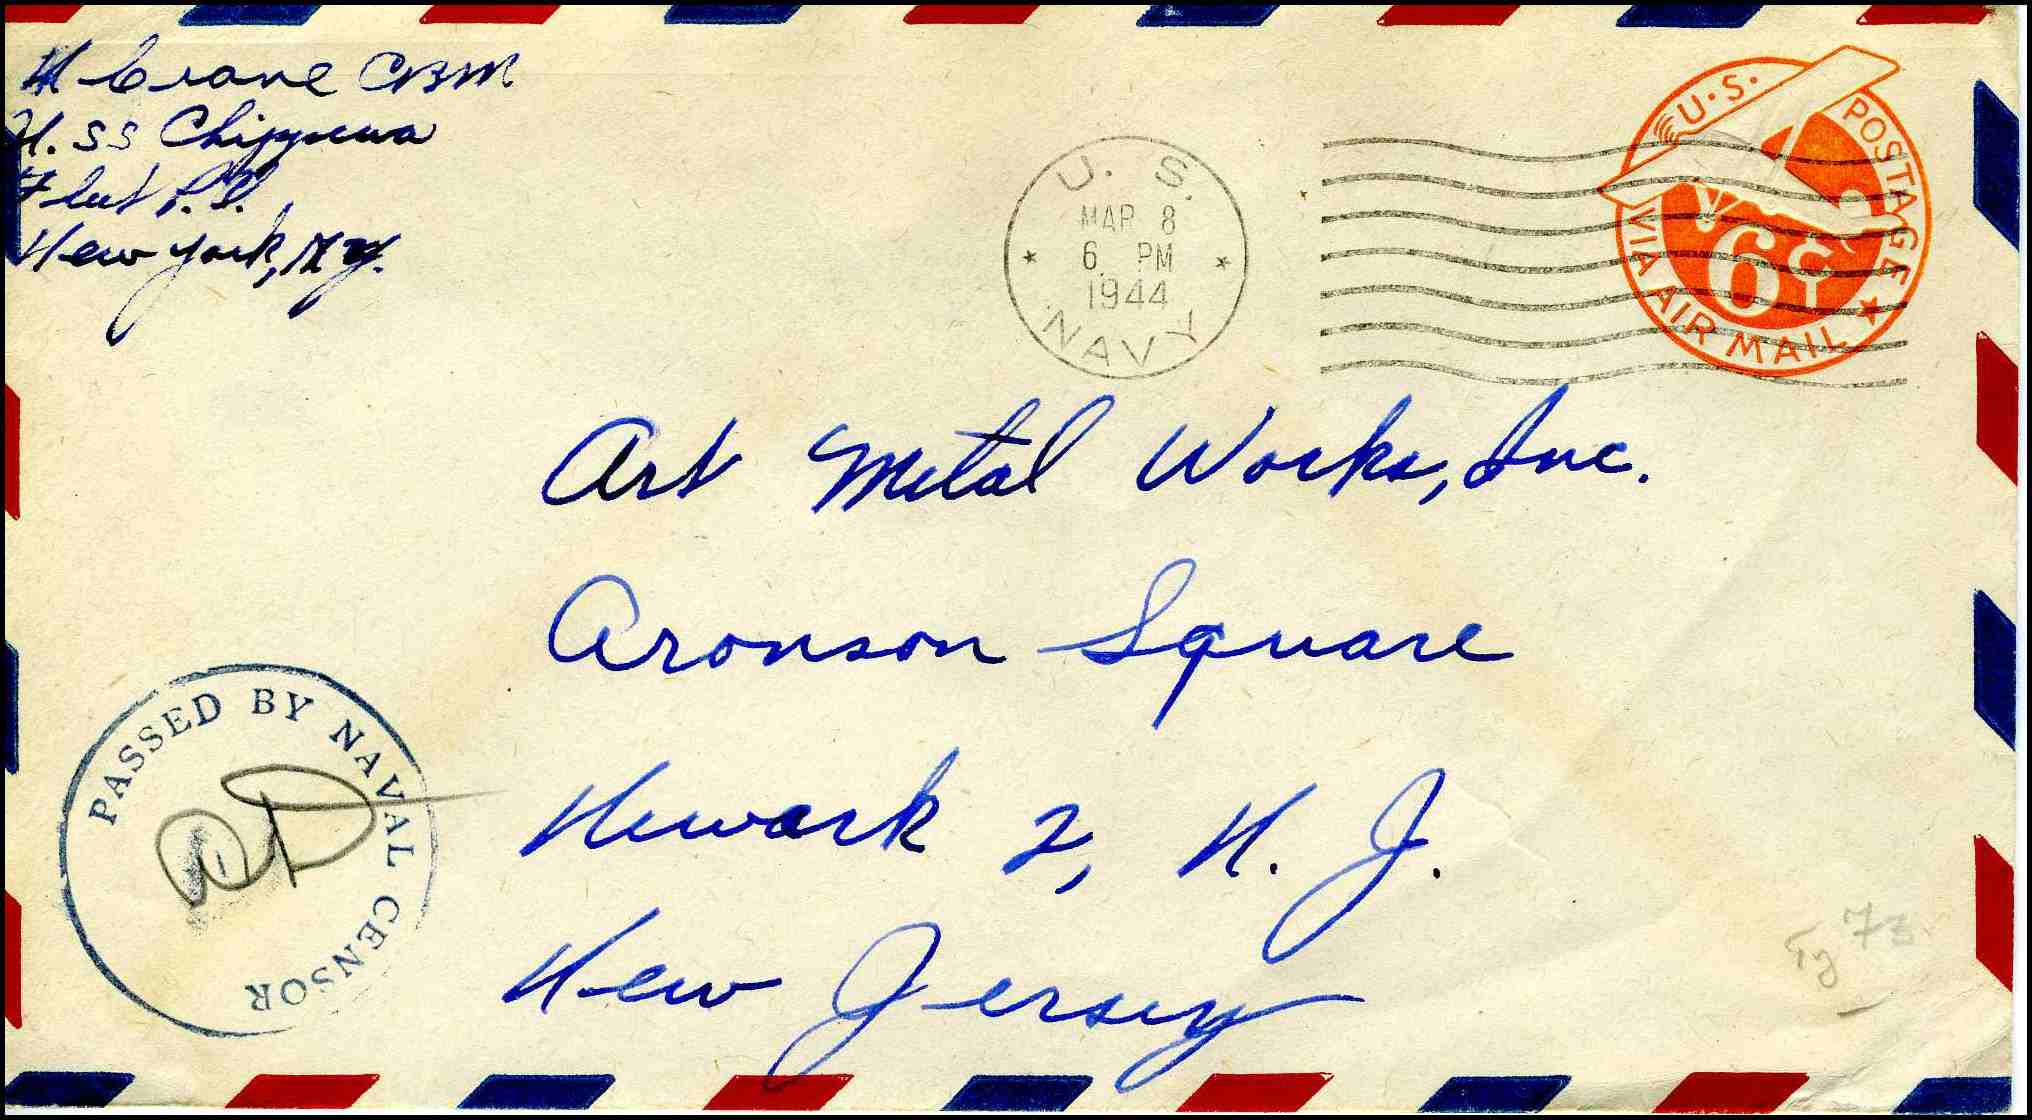 H Crane CBM
U.SS Chippewa
Fleet P.O.
New York, N.Y.
U. S.
MAR 8
6 PM
1944
NAVY
U.S. POSTAGE
6¢
VIA AIR MAIL
Art Metal Works, Inc.
Aronson Square
Newark 2, N. J.
New Jersey
PASSED BY NAVAL CENSOR
73